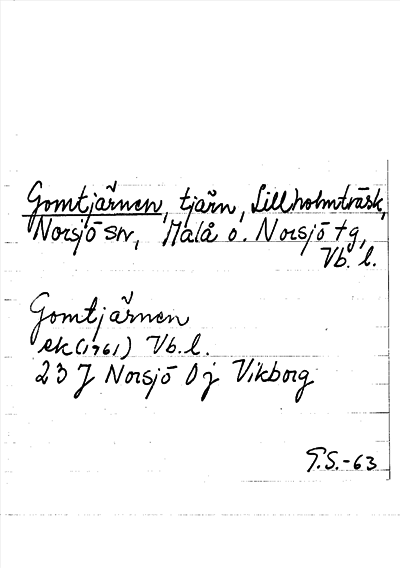 Gomtjärnen, tjärn, Lillholmträsk,
Norsjö sn, Malå o. Norsjö tg,
Vb. l.
Gomtjärnen
ek (1961) Vb. l.
23 J Norsjö 0 j Vikborg
T.S.-63